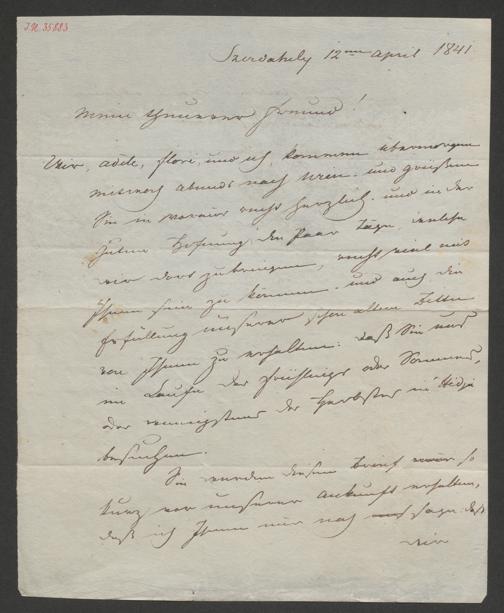 I.N. 35883
Szerdahely 12ten April 1841
Mein theuerer Freund!
Wir, Adele, Flori, und ich, kommen übermorgen
Mittwoch abends nach Wien. und grüßen
Sie in voraus recht herzlich. und in der
guten Hofnung, die Paar Tage, welche
wir dort zubringen, recht viel mit
Ihnen sein zu können. und auch die
Erfüllung unserer schon alten Bitte
von Ihnen zu erhalten: daß Sie uns
im Laufe des Frühlings oder Sommers,
oder wenigstens des Herbstes in
besuchen.
Sie werden diesen Brief so
kurz vor unserer Ankunft erhalten,
daß ich Ihnen nur noch sage: daß
wir